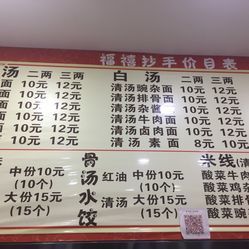 福禧抄手价目表
汤 二两 三两
面 10元 12元
面 10元 12元
面 10元 12元
面 10元 12元
面 10元 12元
白汤 二两 三两
清汤豌杂面 10元 12元
清汤排骨面 10元 12元
清汤杂酱面 10元 12元
清汤牛肉面 10元 12元
清汤卤肉面 10元 12元
清汤 素 面 8元 10元
中份10元
(10个)
大份15元
(15个)
骨汤水饺
红油 中份10元
(10个)
清汤 大份15元
(15个)
米线(清
酸菜牛肉
酸菜鸡杂
酸菜排骨
酸菜豌